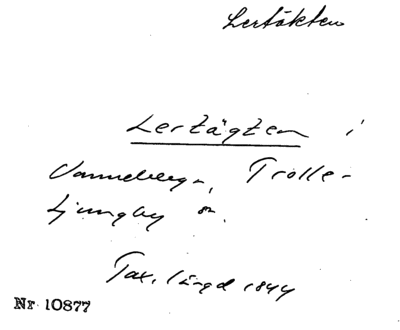 Lertäkten
Lertägten i
Vanneberga, Trolle-
Ljungby sn.
Tax. längd 1844
Nr 10877